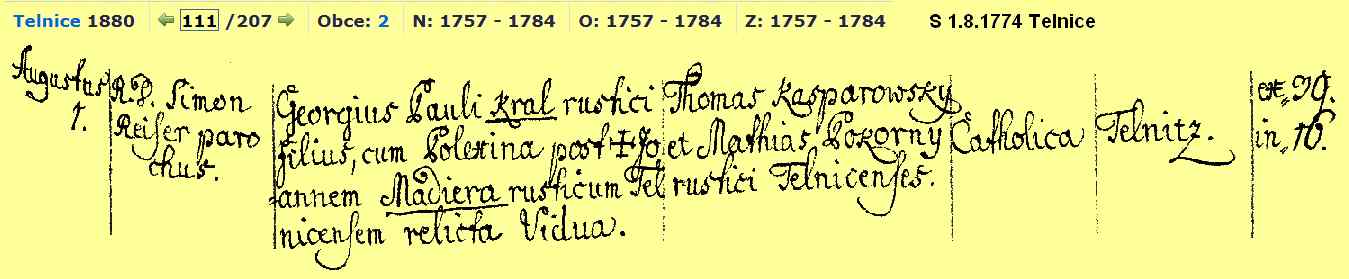 Telnice 1880 111 /207 Obce: 2 N: 1757 - 1784 O: 1757 - 1784 Z: 1757 - 1784 S 1.8.1774 Telnice
Augustus
1.
R.D. Simon
Reiser paro
chus.
Georgius Pauli Kral rustici
filius, cum Polexina post ‡ Jo
annem Madiera rusticum Tel
nicensem relicta Vidua.
Thomas Kasparowsky
et Mathias Pokorny
rustici Telnicenses.
Catholica
Telnitz.
in 16.